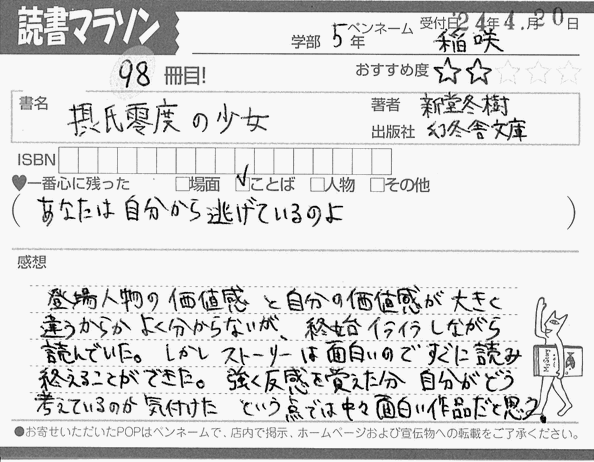 読書マラソン
学部 5年 ペンネーム 稲咲 受付日 24年4月20日
98 冊目!
おすすめ度 ☆☆☆☆☆
書名 摂氏零度の少女
著者 新堂冬樹
出版社 幻冬舎文庫
ISBN
♥一番心に残った □場面 ☑ことば □人物 □その他
(あなたは自分から逃げているのよ)
感想
登場人物の価値感と自分の価値感が大きく
違うからか よく分からないが、終始イライラしながら
読んでいた。しかしストーリーは面白いのですぐに読み
終えることができた。強く反感を覚えた分 自分がどう
考えているのか気付けた という点では中々面白い作品だと思う。
●お寄せいただいたPOPはペンネームで、店内で掲示、ホームページおよび宣伝物への転載をご了承ください。